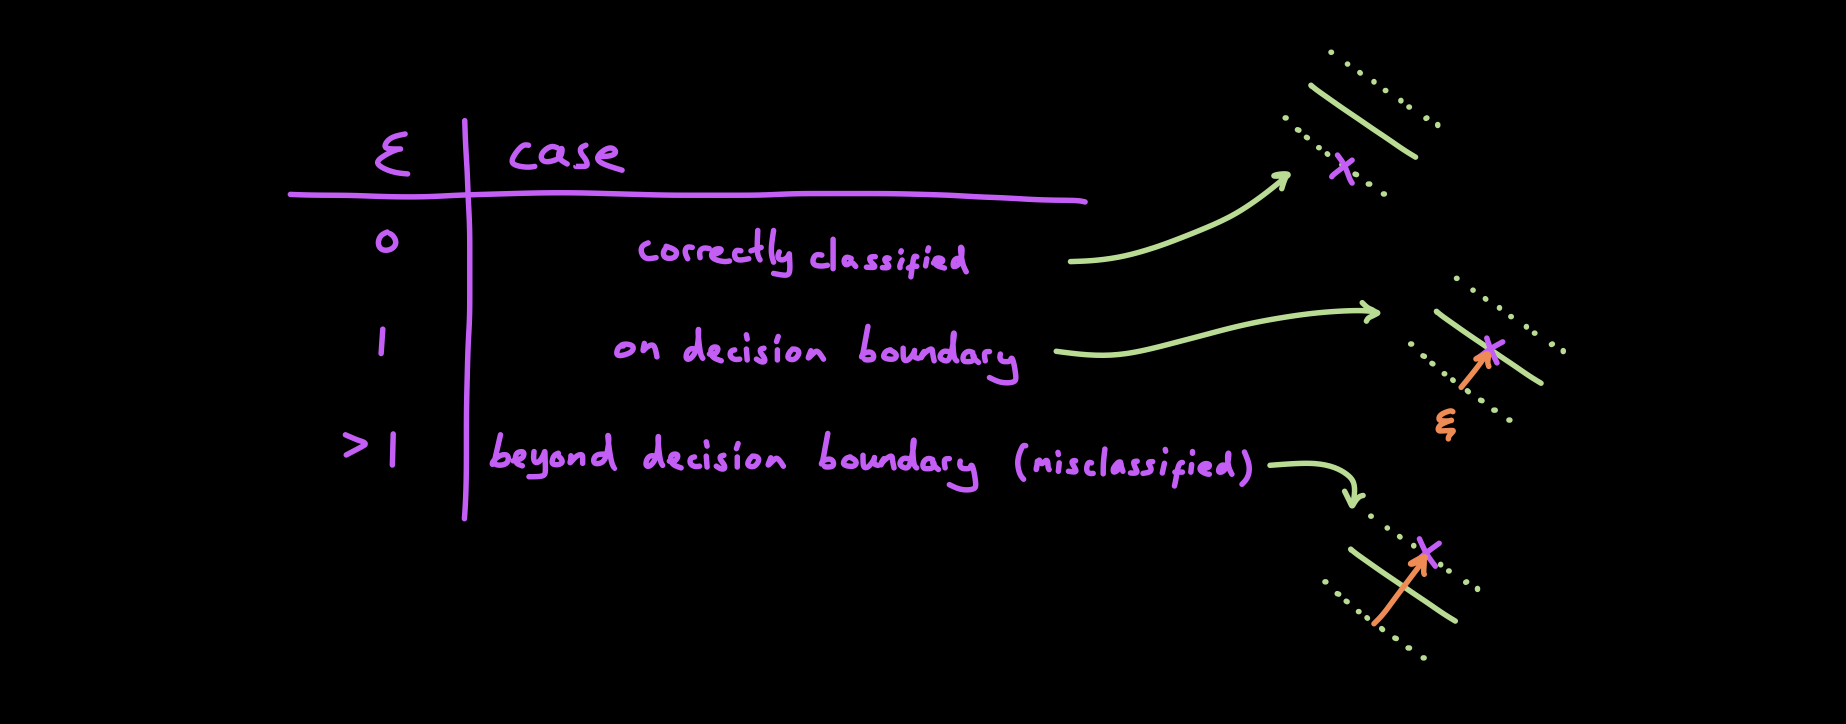 ξ case
0 correctly classified
1 on decision boundary
ξ
>1 beyond decision boundary (misclassified)